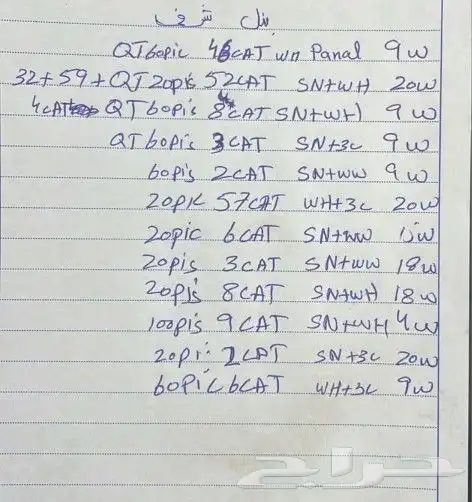 بنل شرف
QT60pic 46CAT WH Panal 9w
32+59+QT20pis 52CAT SN+WH 20w
4CAT QT60pis 8CAT SN+WH 9w
QT60pis 3CAT SN+3C 9w
60pis 2CAT SN+WW 9w
20pic 57CAT WH+3C 20w
20pic 6CAT SN+WW
20pis 3CAT SN+WW 18w
20pis 8CAT SN+WH 18w
100pis 9CAT SN+WH 4w
20pi 2CAT SN+3C 20w
60pic 6CAT WH+3C 9w
حراج